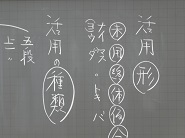 活用形
未用終体仮命
ナイ マス 。 トキ バ
(ヨウ)
活用の種類
五段
上一